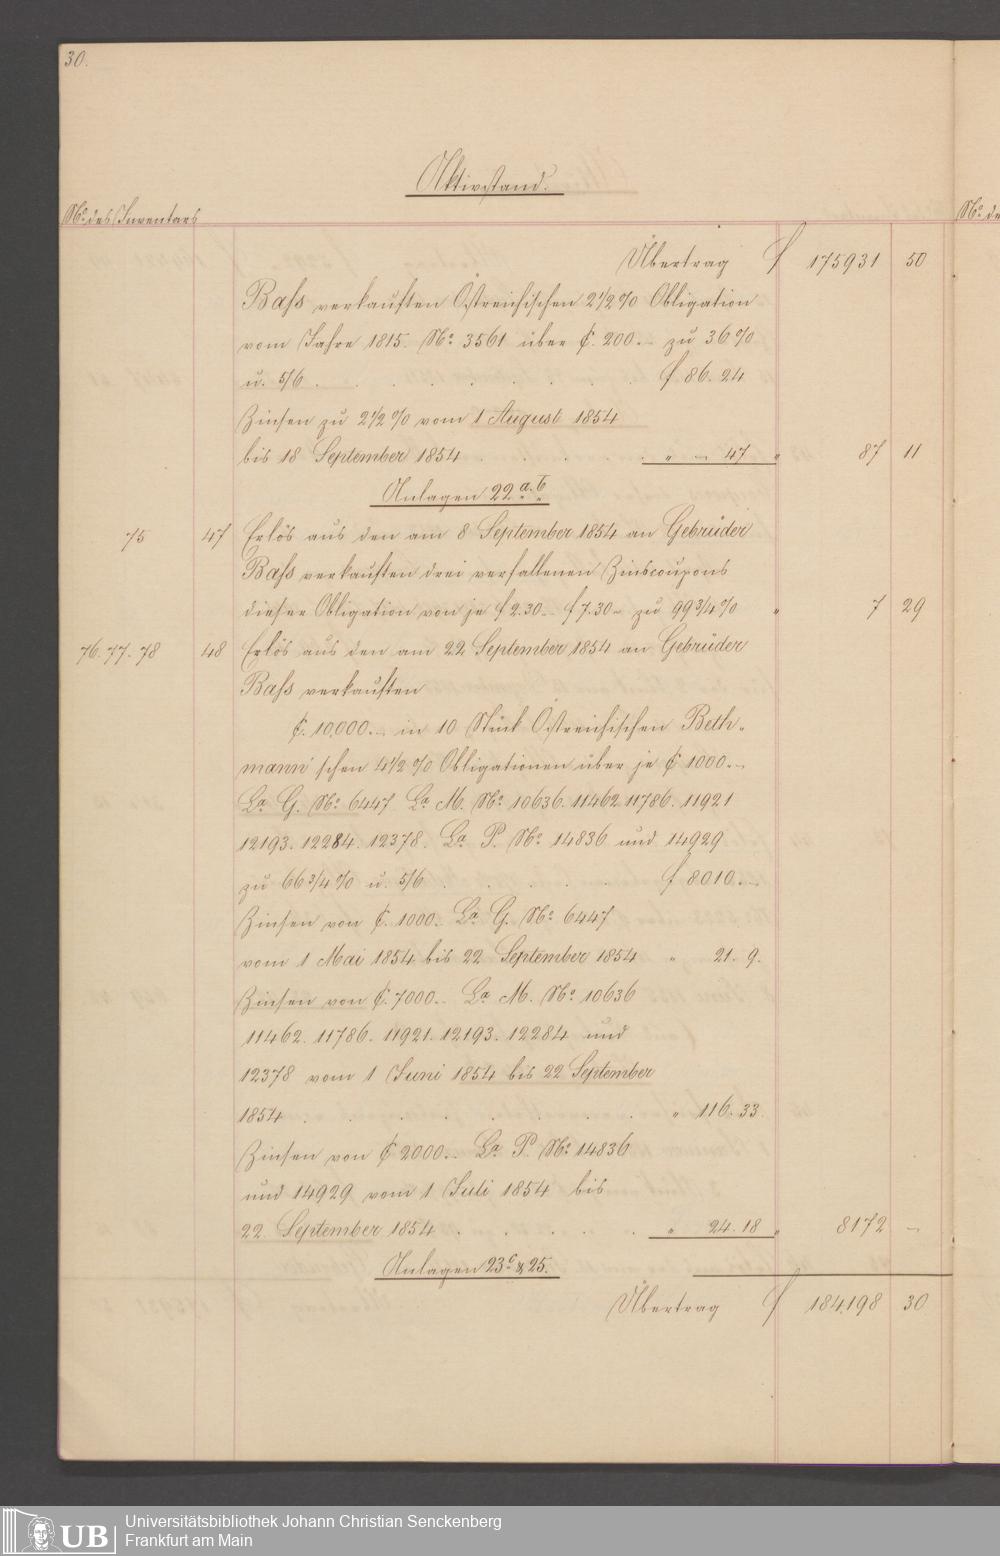 30.
Aktivstand.
No. des Inventars
No. de
Übertrag f 175931 50
Bass verkauften Östreichischen 2 1/2 % Obligation
vom Jahre 1815. No. 3561 über ₵. 200.- zu 36 %
u. 5/6 . . . . . . . f. 86. 24
Zinsen zu 2 1/2 % vom 1 August 1854
bis 18 September 1854 . . . . . „ - 47 „ 87 11
Anlagen 22 a. b.
75 47 Erlös aus den am 8 September 1854 an Gebrüder
Bass verkauften drei verfallenen Zinscoupons
dieser Obligation von je f 2.30.- f 7.30.- zu 99 3/4 % „ 7 29
76. 77. 78 48 Erlös aus den am 22 September 1854 an Gebrüder
Bass verkauften
₵. 10,000.- in 10 Stück Östreichischen Beth-
mann'schen 4 1/2 % Obligationen über je ₵ 1000.-
La. G. No. 6447 La. M. No. 10636. 11462. 11786. 11921
12193. 12284. 12378. La. P. No. 14836 und 14929
zu 66 3/4 % u. 5/6 . . . . f 8010.-
Zinsen von ₵. 1000.- La. G. No. 6447
vom 1 Mai 1854 bis 22 September 1854 „ 21. 9.
Zinsen von ₵. 7000.- La. M. No. 10636
11462. 11786. 11921. 12193. 12284 und
12378 vom 1 Juni 1854 bis 22 September
1854 . . . . . . . „ 116. 33.
Zinsen von ₵ 2000.- La. P. No. 14836
und 14929 vom 1 Juli 1854 bis
22. September 1854 . . . . . „ 24. 18 „ 8172 -
Anlagen 23 c. & 25.
Übertrag f 184,198 30
UB
Universitätsbibliothek Johann Christian Senckenberg
Frankfurt am Main